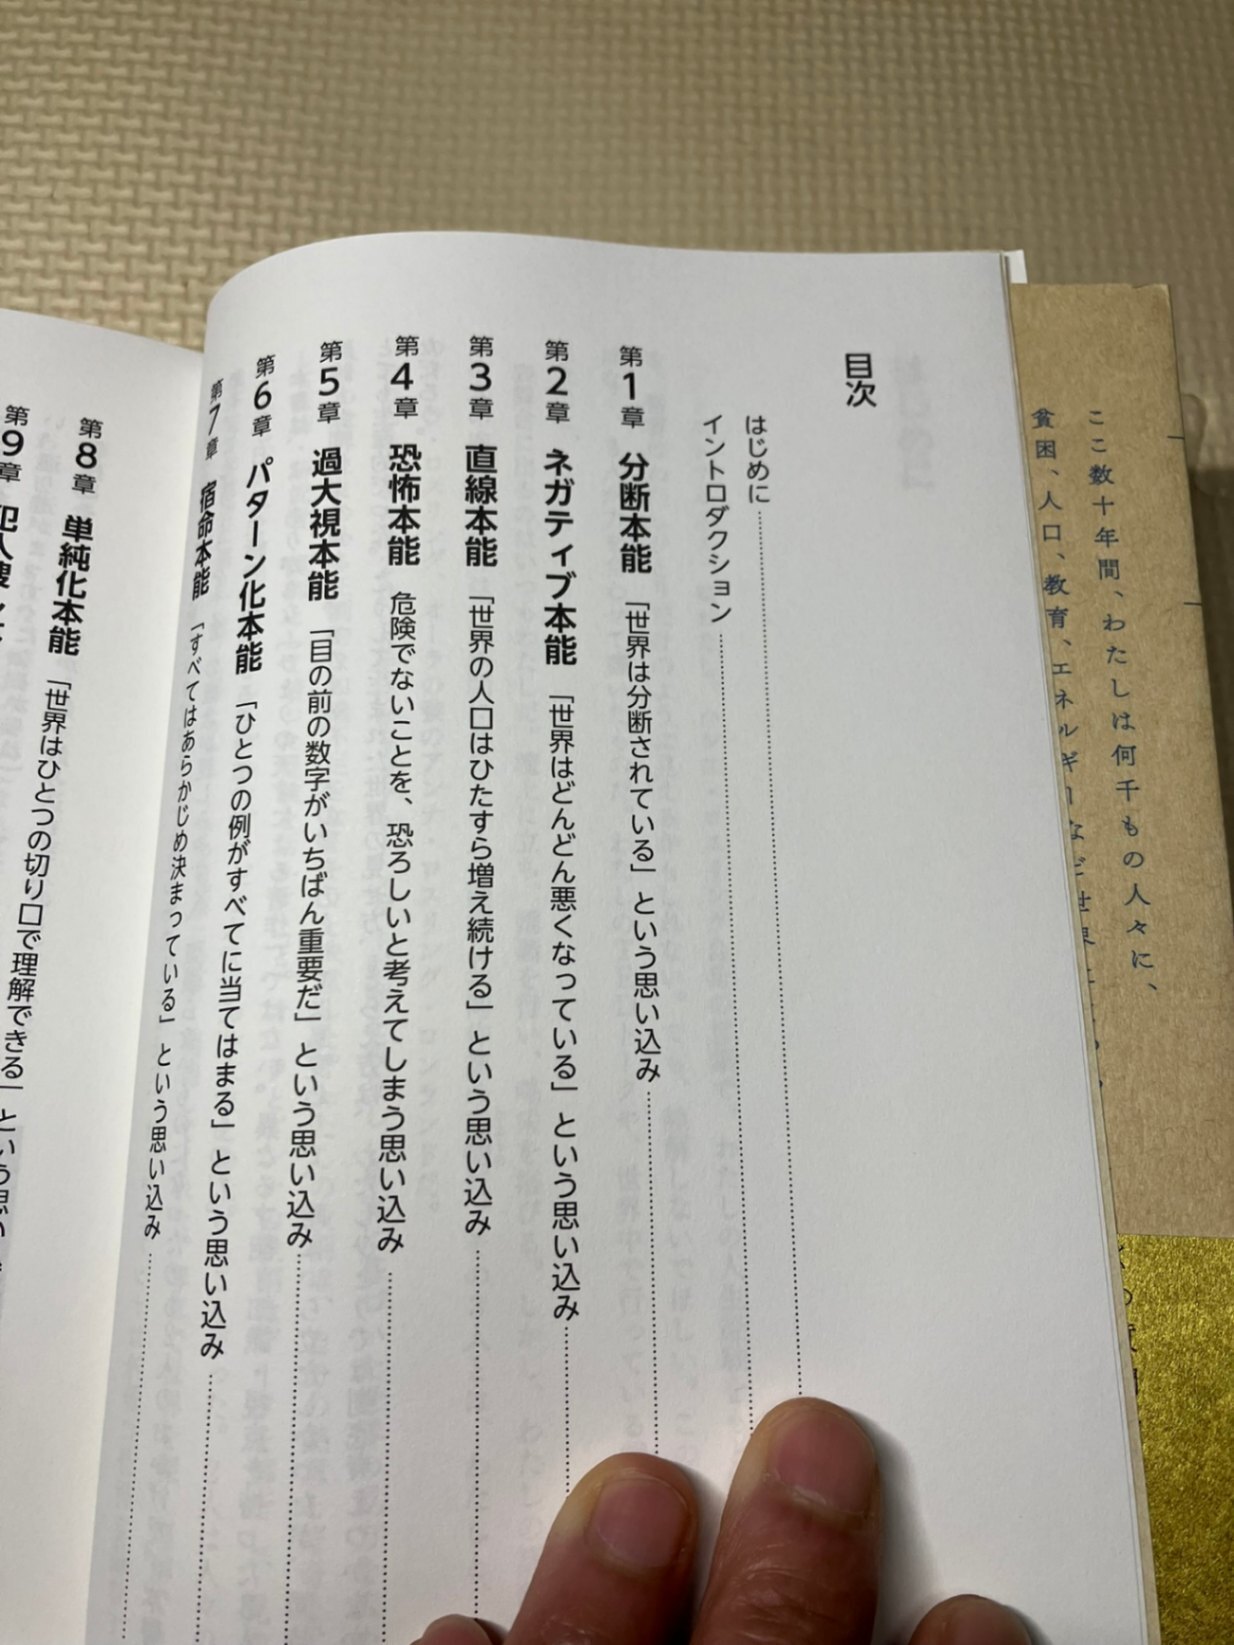 ここ数十年間、わたしは何千もの人々に、
貧困、人口、教育、エネルギーなど世界に
目次
はじめに
イントロダクション
第1章 分断本能 「世界は分断されている」という思い込み
第2章 ネガティブ本能 「世界はどんどん悪くなっている」という思い込み
第3章 直線本能 「世界の人口はひたすら増え続ける」という思い込み
第4章 恐怖本能 危険でないことを、恐ろしいと考えてしまう思い込み
第5章 過大視本能 「目の前の数字がいちばん重要だ」という思い込み
第6章 パターン化本能 「ひとつの例がすべてに当てはまる」という思い込み
第7章 宿命本能 「すべてはあらかじめ決まっている」という思い込み
第8章 単純化本能 「世界はひとつの切り口で理解できる」という思い
第9章 犯人捜し